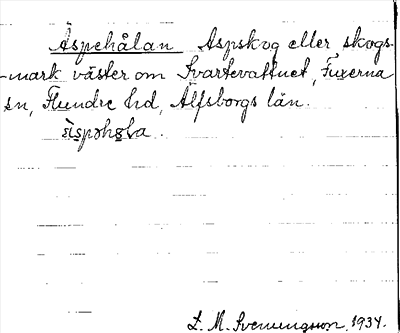 Äspehålan Aspskog eller skogs-
-mark väster om Svartevattnet, Fuxerna
sn, Flundre hd, Älfsborgs län.
L. M. Svenungsson, 1934.